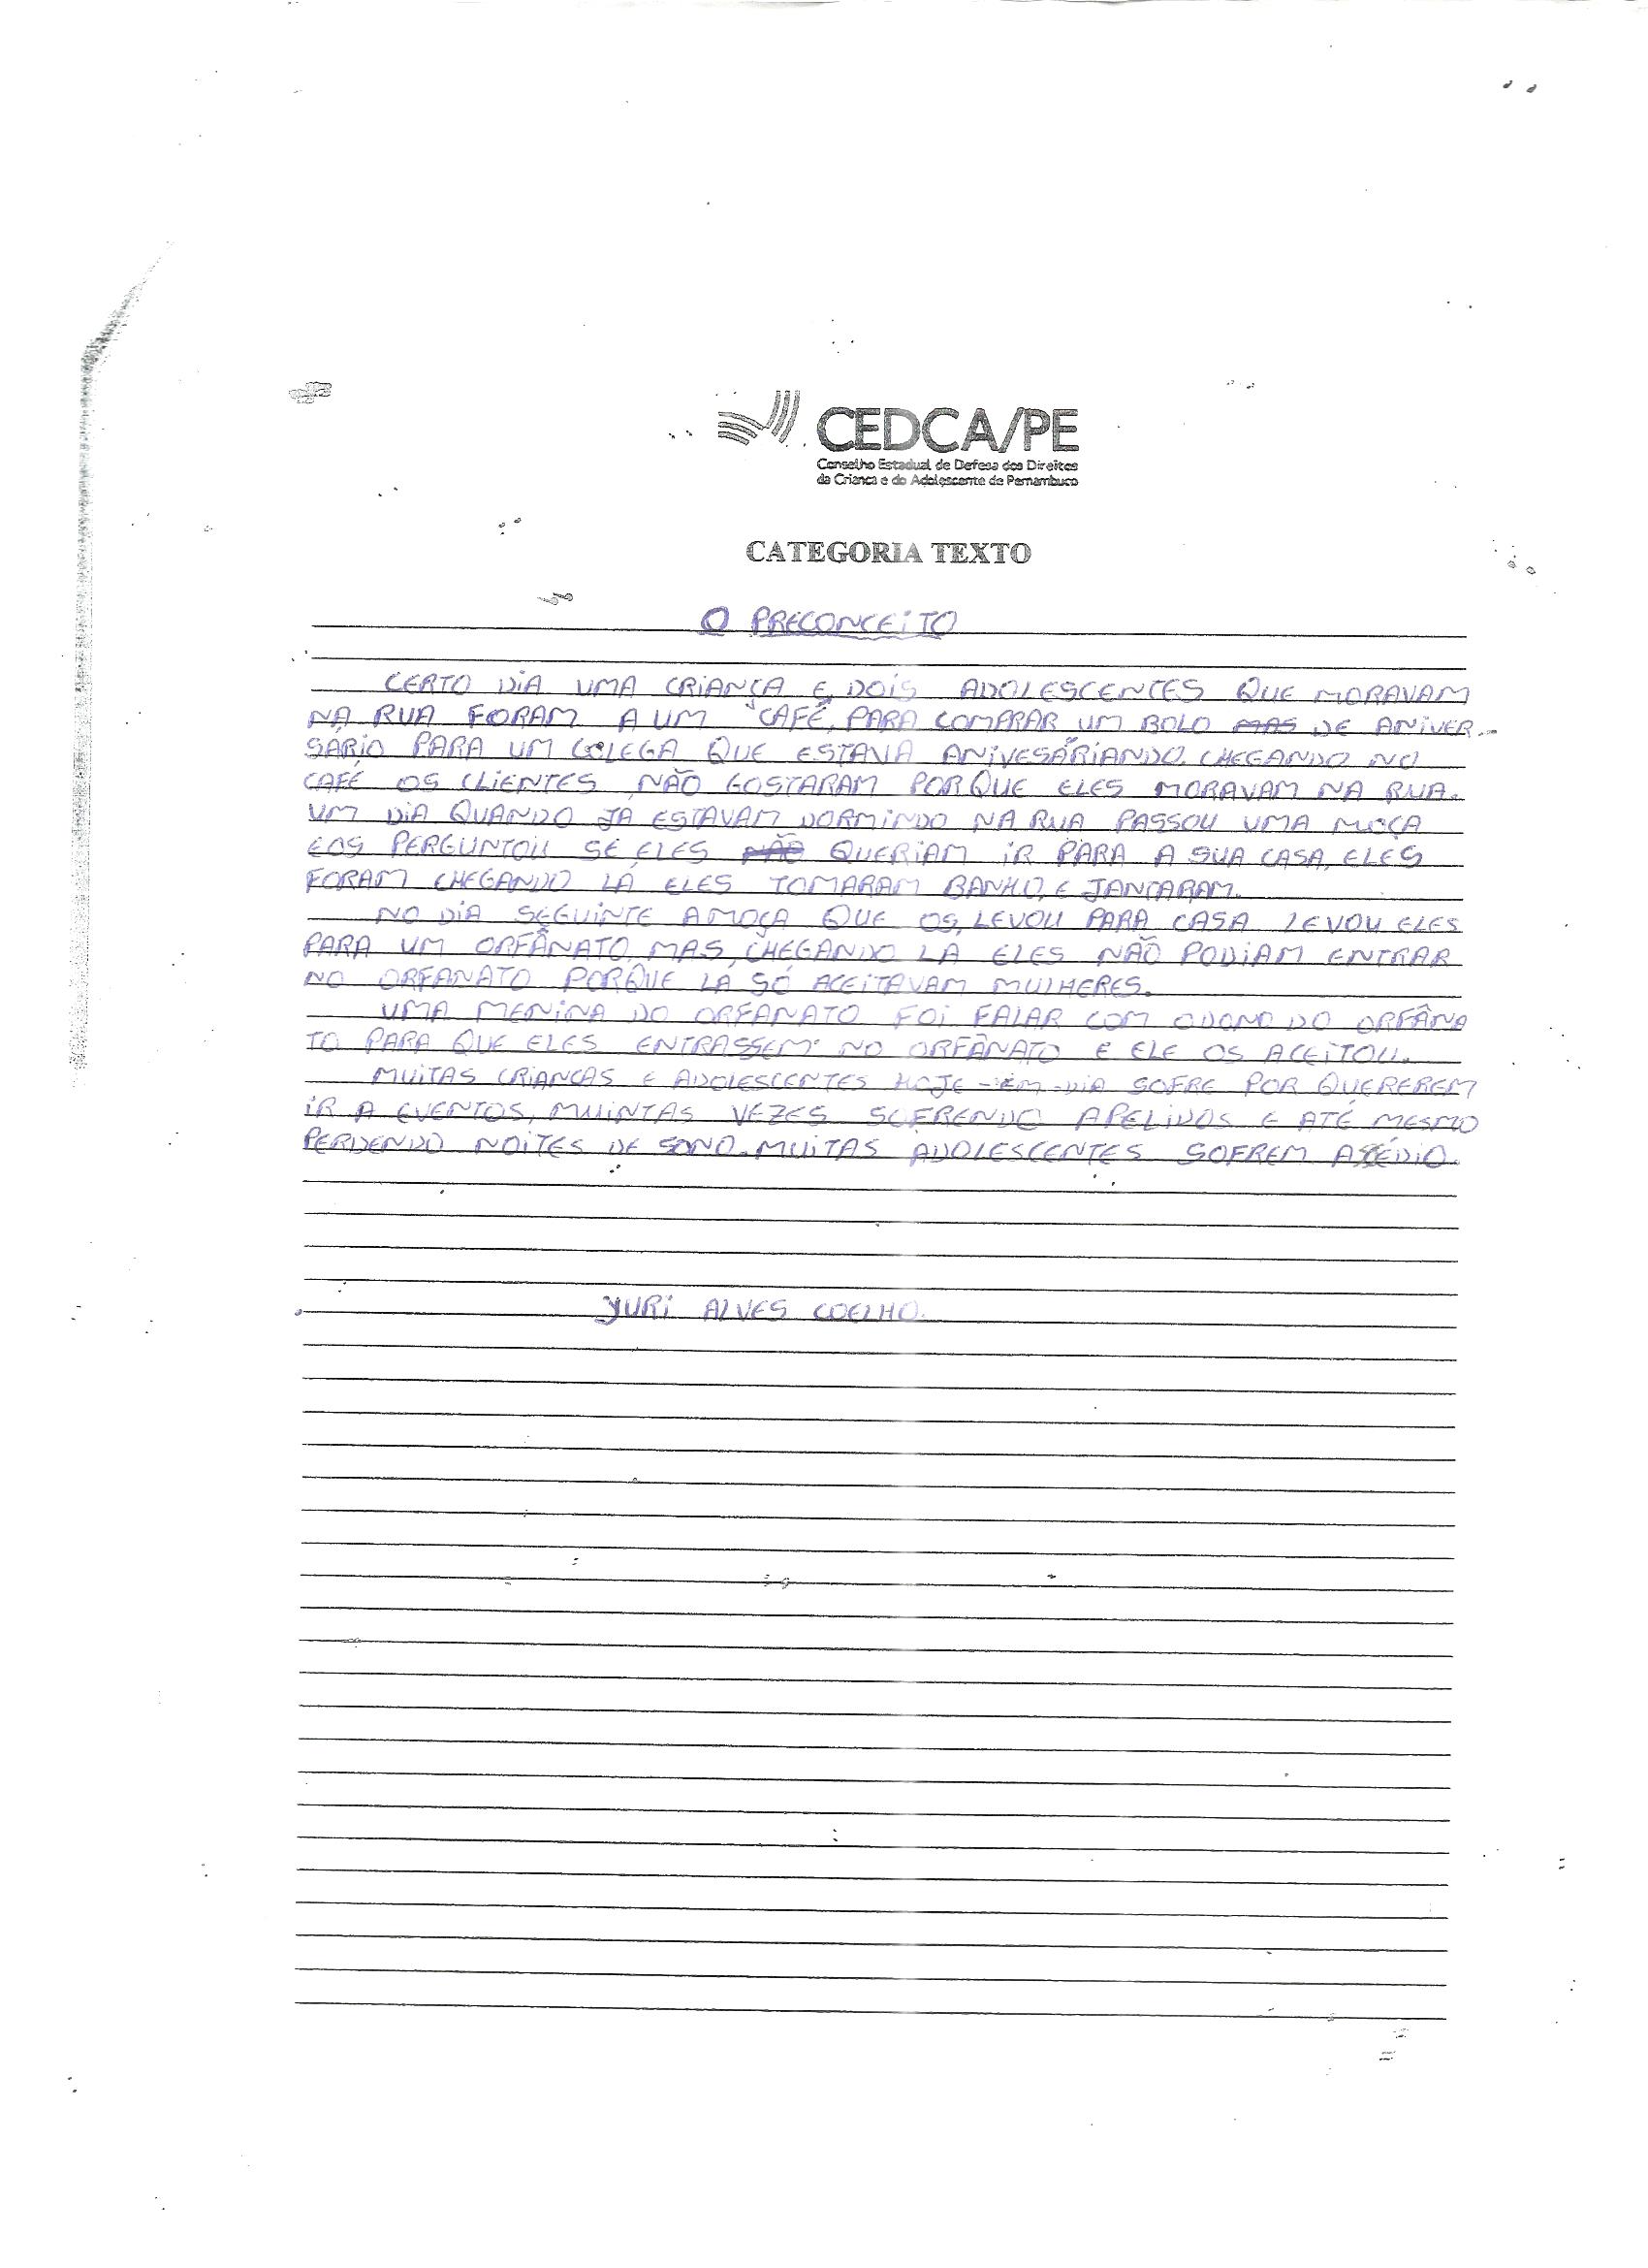 CEDCA/PE
Conselho Estadual de Defesa dos Direitos
da Criança e do Adolescente de Pernambuco
CATEGORIA TEXTO
O PRECONCEITO
CERTO DIA UMA CRIANÇA E DOIS ADOLESCENTES QUE MORAVAM
NA RUA FORAM A UM "CAFÉ", PARA COMPRAR UM BOLO MAS DE ANIVER-
SÁRIO PARA UM COLEGA QUE ESTAVA ANIVESÁRIANDO. CHEGANDO NO
CAFÉ OS CLIENTES NÃO GOSTARAM PORQUE ELES MORAVAM NA RUA.
UM DIA QUANDO JÁ ESTAVAM DORMINDO NA RUA PASSOU UMA MOÇA
EOS PERGUNTOU SE ELES NÃO QUERIAM IR PARA A SUA CASA, ELES
FORAM CHEGANDO LÁ ELES TOMARAM BANHO, E JANTARAM.
NO DIA SEGUINTE A MOÇA QUE OS, LEVOU PARA CASA LEVOU ELES
PARA UM ORFÂNATO, MAS, CHEGANDO LÁ ELES NÃO PODIAM ENTRAR
NO ORFANATO PORQUE LÁ SÓ ACEITAVAM MULHERES.
UMA MENINA DO ORFANATO FOI FALAR COM O DONO DO ORFÂNA
TO PARA QUE ELES ENTRASSEM NO ORFÂNATO E ELE OS ACEITOU.
MUITAS CRIANCAS E ADOLESCENTES HOJE-EM-DIA SOFRE POR QUEREREM
IR A EVENTOS, MUINTAS VEZES SOFRENDO APELIDOS E ATÉ MESMO
PERDENDO NOITES DE SONO. MUITAS ADOLESCENTES SOFREM ASÉDIO.
YURI ALVES COELHO.